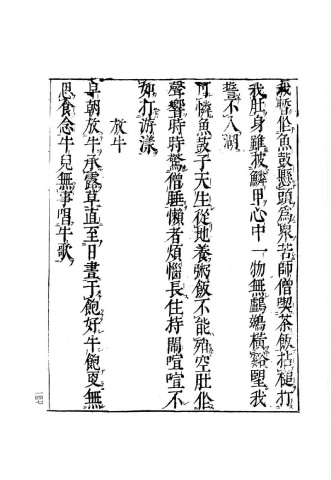 我暫作魚鼓懸頭為眾苦師僧喫茶飯拈槌打
我肚身雖披鱗甲心中一物無鸕鷀橫谿望我
誓不入湖
可憐魚鼓子天生從地養粥飯不能飡空肚作
聲響時時驚僧睡懶者煩惱長住持鬧喧喧不
如打游漾
放牛
早朝放牛承露草直至日晝干飽好牛飽更無
思食念牛兒無事唱牛歌
一四七